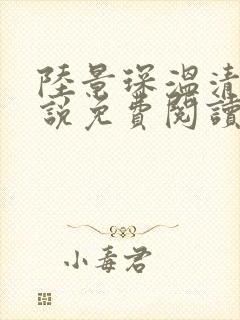 陸景琛溫清
說免費閱讀
小毒君